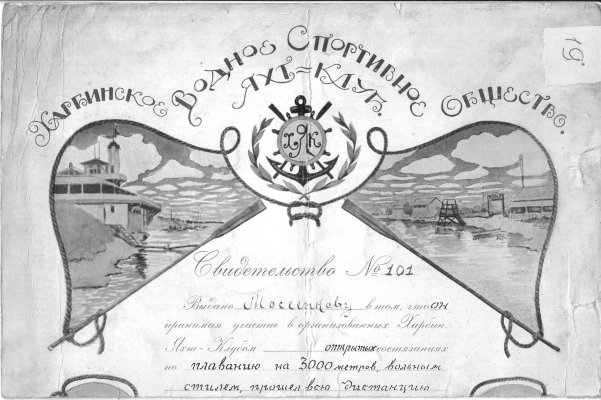 Харбинское Водное Спортивное Общество.
Яхт-Клуб.
19
ХЯК
Свидетельство № 101
Выдано Мосенкову в том, что он
принимая участие в организованных Харбин.
Яхт-Клубом открытых состязаниях
по плаванию на 3000 метров, вольным
стилем, прошел всю дистанцию